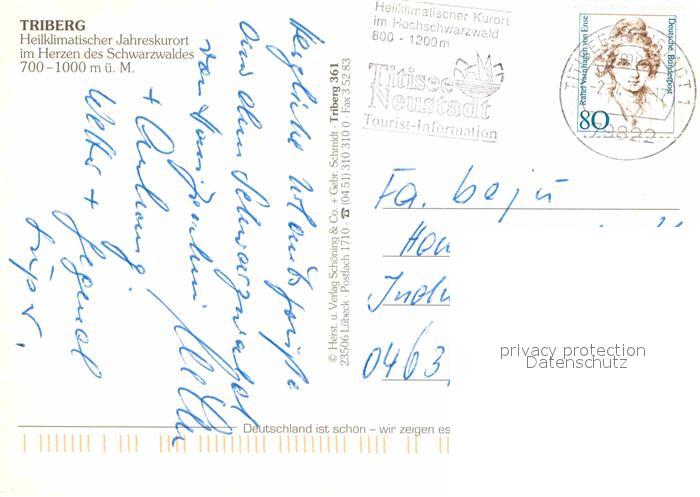 TRIBERG
Heilklimatischer Jahreskurort
im Herzen des Schwarzwaldes
700–1000 m ü. M.
Herzliche Urlaubsgrüße
aus dem Schwarzwald
von
+ Anhang.
Wetter + Gegend
super.
© Herst. u. Verlag Schöning & Co. + Gebr. Schmidt · Triberg 361
23506 Lübeck · Postfach 1710 · ☎ (04 51) 310 310 0 · Fax 3 52 83
Heilklimatischer Kurort
im Hochschwarzwald
800 - 1200m
Titisee
Neustadt
Tourist-Information
Deutsche Bundespost
Rahel Varnhagen von Ense
80
79822
Fa. beju
Indu
0463
privacy protection
Datenschutz
Deutschland ist schön – wir zeigen es